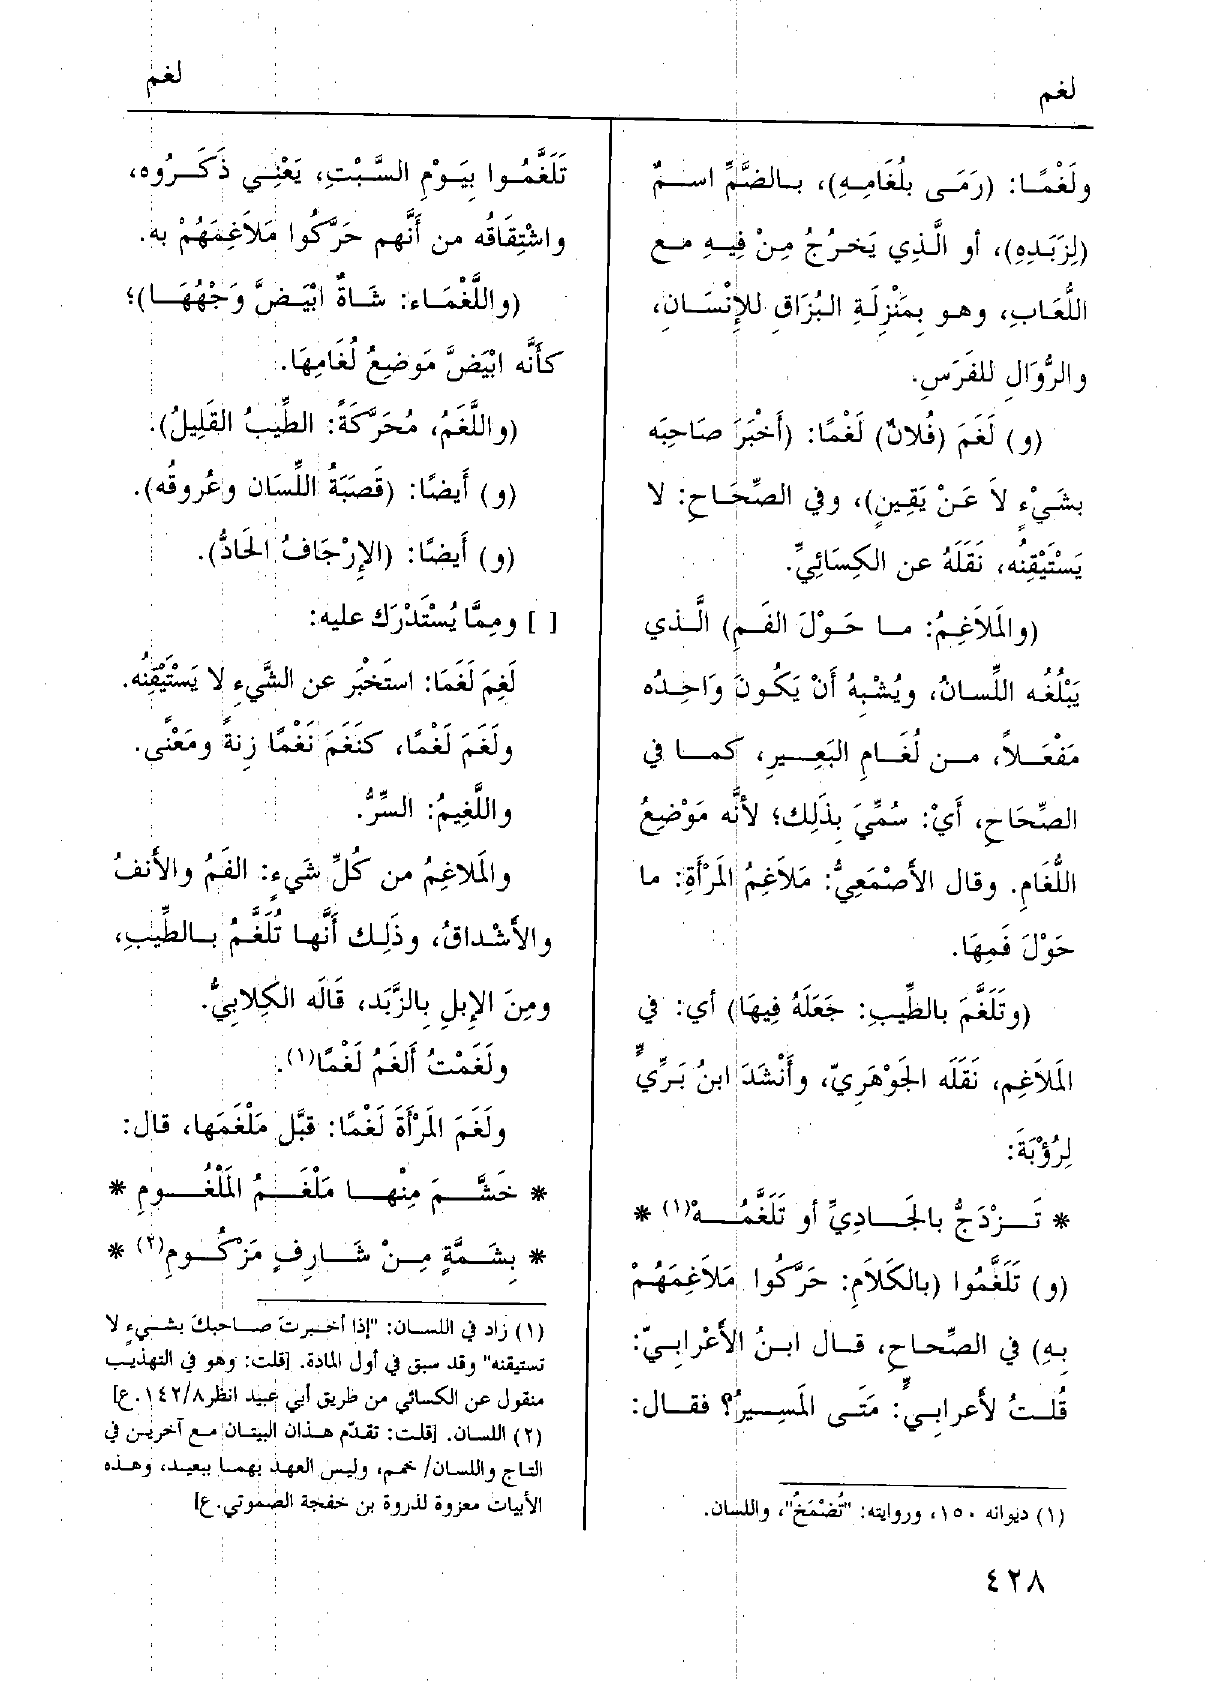 لغم
لغم
ولَغْمًا: (رَمَى بلُغَامِهِ)، بالضَّمِّ اسمٌ
(لِزَبَدِهِ)، أو الَّذِي يَخرُجُ مِنْ فِيهِ مع
اللُّعَابِ، وهو بِمَنْزِلَةِ البُزَاقِ للإِنْسَانِ،
والرُّوَالِ للفَرَسِ.
(و) لَغَمَ (فُلانٌ) لَغْمًا: (أَخْبَرَ صَاحِبَه
بشَيْءٍ لاَ عَنْ يَقِينٍ)، وفي الصِّحَاحِ: لا
يَسْتَيْقِنُه، نَقَلَهُ عن الكِسَائِيِّ.
(والمَلاَغِمُ: ما حَوْلَ الفَمِ) الَّذي
يَبْلُغُه اللِّسانُ، ويُشْبِهُ أَنْ يَكُونَ وَاحِدُه
مَفْعَلاً، من لُغَامِ البَعِيرِ، كما في
الصِّحَاحِ، أَيْ: سُمِّيَ بذَلِك؛ لأَنَّه مَوْضِعُ
اللُّغَامِ. وقال الأَصْمَعِيُّ: مَلاَغِمُ المَرْأَةِ: ما
حَوْلَ فَمِهَا.
(وتَلَغَّمَ بالطِّيبِ: جَعَلَهُ فِيهَا) أي: في
المَلاَغِمِ، نَقَلَه الجَوْهَرِيّ، وأَنْشَدَ ابنُ بَرِّيٍّ
لِرُؤْبَةَ:
* تَزْدَجُّ بالجَادِيِّ أو تَلَغَّمُهْ(١) *
(و) تَلَغَّمُوا (بالكَلاَمِ: حَرَّكُوا مَلاَغِمَهُمْ
بِهِ) في الصِّحاحِ، قال ابنُ الأَعْرابيّ:
قُلتُ لأَعرابيٍّ: مَتَى المَسِيرُ؟ فقال:
(١) ديوانه ١٥٠، وروايته: "تُضْمَخُ"، واللسان.
تَلَغَّمُوا بِيَوْمِ السَّبْتِ، يَعْنِي ذَكَرُوه،
واشْتِقَاقُه من أَنَّهم حَرَّكُوا مَلاَغِمَهُمْ به.
(واللَّغْمَاء: شَاةٌ ابْيَضَّ وَجْهُهَا)؛
كأَنَّه ابْيَضَّ مَوضِعُ لُغَامِهَا.
(واللَّغَمُ، مُحَرَّكَةً: الطِّيبُ القَلِيلُ).
(و) أَيضًا: (قَصَبَةُ اللِّسَان وعُروقُه).
(و) أَيضًا: (الإِرْجَافُ الحَادُّ).
[ ] ومِمَّا يُسْتَدْرَك عليه:
لَغِمَ لَغَمًا: استَخْبَر عن الشَّيءِ لا يَسْتَيْقِنُه.
ولَغَمَ لَغْمًا، كنَغَمَ نَغْمًا زِنةً ومَعْنًى.
واللَّغِيمُ: السِّرُّ.
والمَلاغِمُ من كُلِّ شَيءٍ: الفَمُ والأَنفُ
والأَشْداقُ، وذَلِك أَنَّها تُلَغَّمُ بالطِّيبِ،
ومِنَ الإِبلِ بِالزَّبَد، قَالَه الكِلابيُّ.
ولَغَمْتُ أَلغَمُ لَغْمًا(١).
ولَغَمَ المَرْأَةَ لَغْمًا: قبَّل مَلْغَمَها، قال:
* خَشَّمَ مِنْها مَلْغَمُ المَلْغُومِ *
* بِشَمَّةٍ مِنْ شَارِفٍ مَزْكُومِ(٢) *
(١) زاد في اللسان: "إذا أخبرتَ صاحبكَ بشيءٍ لا
تستيقنه" وقد سبق في أول المادة. [قلت: وهو في التهذيب
منقول عن الكسائي من طريق أبي عبيد انظر ١٤٢/٨.ع]
(٢) اللسان. [قلت: تقدّم هذان البيتان مع آخرين في
التاج واللسان/ خمم، وليس العهد بهما ببعيد، وهذه
الأبيات معزوة لذروة بن خفجة الصموتي.ع]
٤٢٨